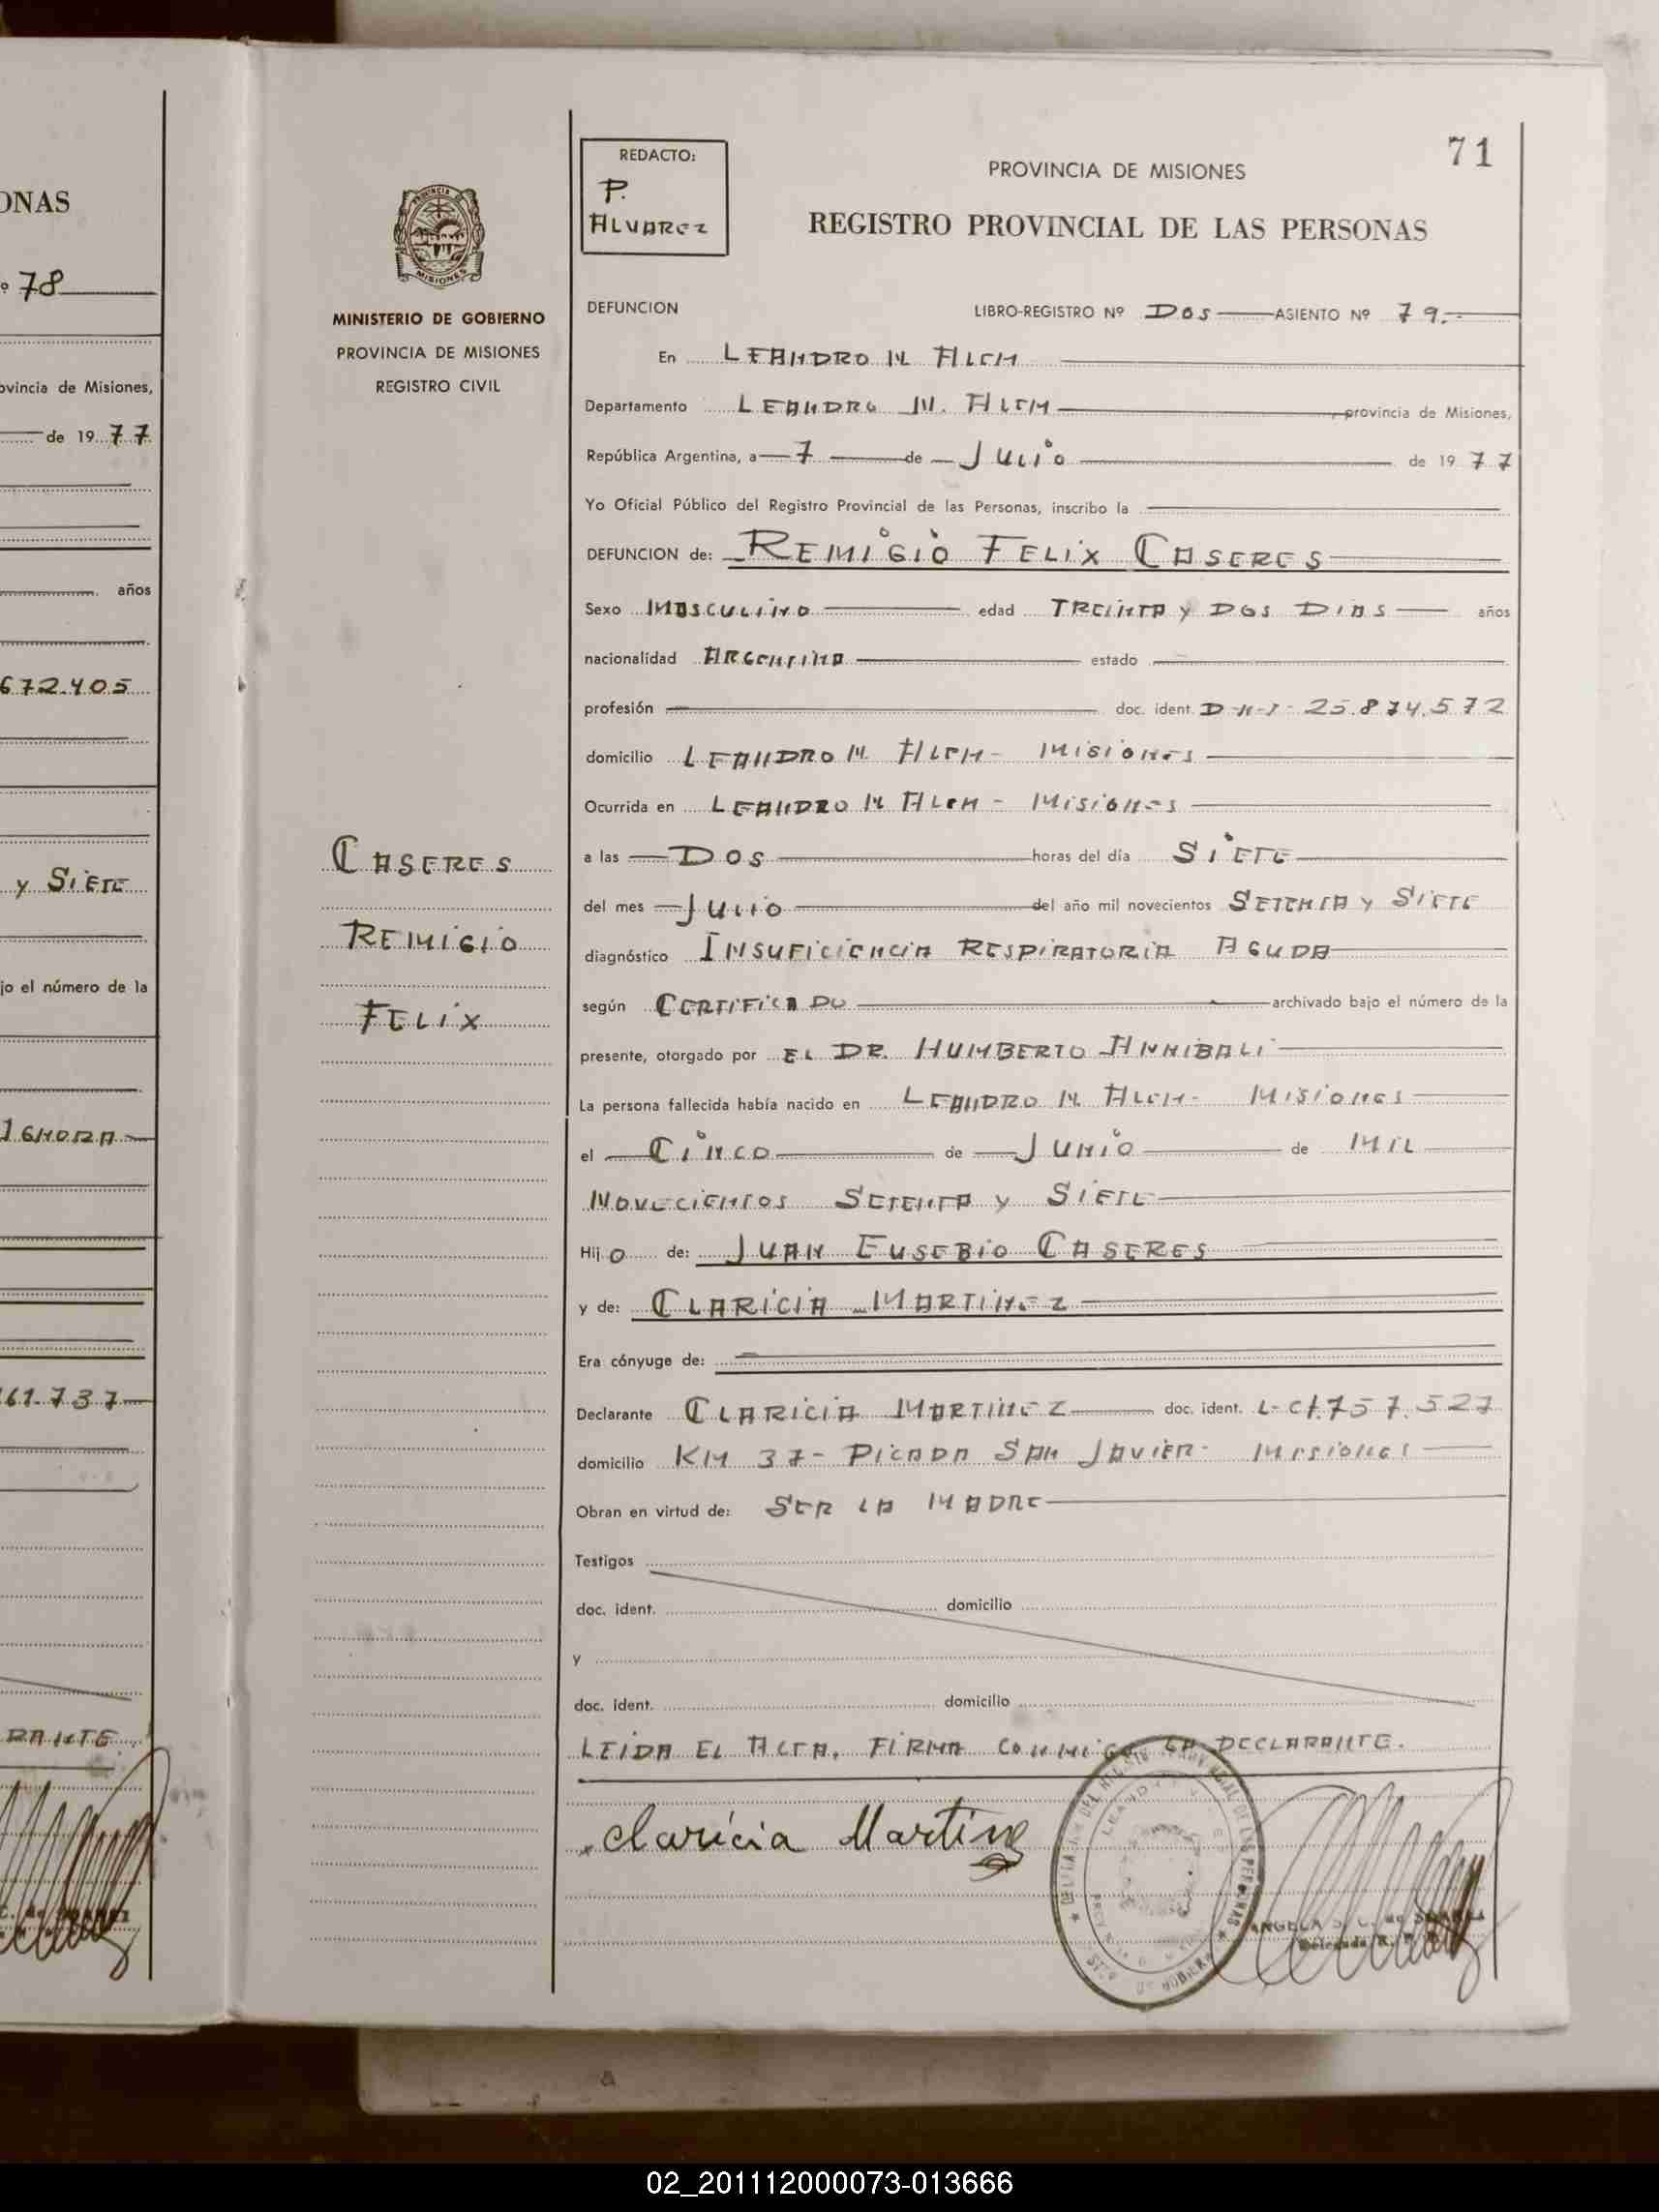 ONAS
º 78
ovincia de Misiones,
de 19 77
años
672.405
y SIETE
jo el número de la
161.737
RANTE.
71
REDACTO:
P.
ALVAREZ
PROVINCIA DE MISIONES
REGISTRO PROVINCIAL DE LAS PERSONAS
MINISTERIO DE GOBIERNO
PROVINCIA DE MISIONES
REGISTRO CIVIL
CASERES
REMIGIO
FELIX
DEFUNCION LIBRO-REGISTRO Nº DOS ASIENTO Nº 79.-
En LEANDRO N. ALEM
Departamento LEANDRO N. ALEM provincia de Misiones,
República Argentina, a 7 de JULIO de 19 77
Yo Oficial Público del Registro Provincial de las Personas, inscribo la
DEFUNCION de: REMIGIO FELIX CASERES
Sexo MASCULINO edad TREINTA y DOS DIAS años
nacionalidad ARGENTINA estado
profesión doc. ident. D-N-I- 25.874.572
domicilio LEANDRO N. ALEM - MISIONES
Ocurrida en LEANDRO N ALEM - MISIONES
a las DOS horas del día SIETE
del mes JULIO del año mil novecientos SETENTA y SIETE
diagnóstico INSUFICIENCIA RESPIRATORIA AGUDA
según CERTIFICADO archivado bajo el número de la
presente, otorgado por EL DR. HUMBERTO ANNIBALI
La persona fallecida había nacido en LEANDRO N. ALEM - MISIONES
el CINCO de JUNIO de MIL
NOVECIENTOS SETENTA y SIETE
Hijo de: JUAN EUSEBIO CASERES
y de: CLARICIA MARTINEZ
Era cónyuge de:
Declarante CLARICIA MARTINEZ doc. ident. L-C 1.757.527
domicilio KM 37 - PICADA SAN JAVIER - MISIONES
Obran en virtud de: SER LA MADRE
Testigos
doc. ident. domicilio
y
doc. ident. domicilio
LEIDA EL ACTA, FIRMA CONMIGO LA DECLARANTE.
Claricia Martinez
02_201112000073-013666